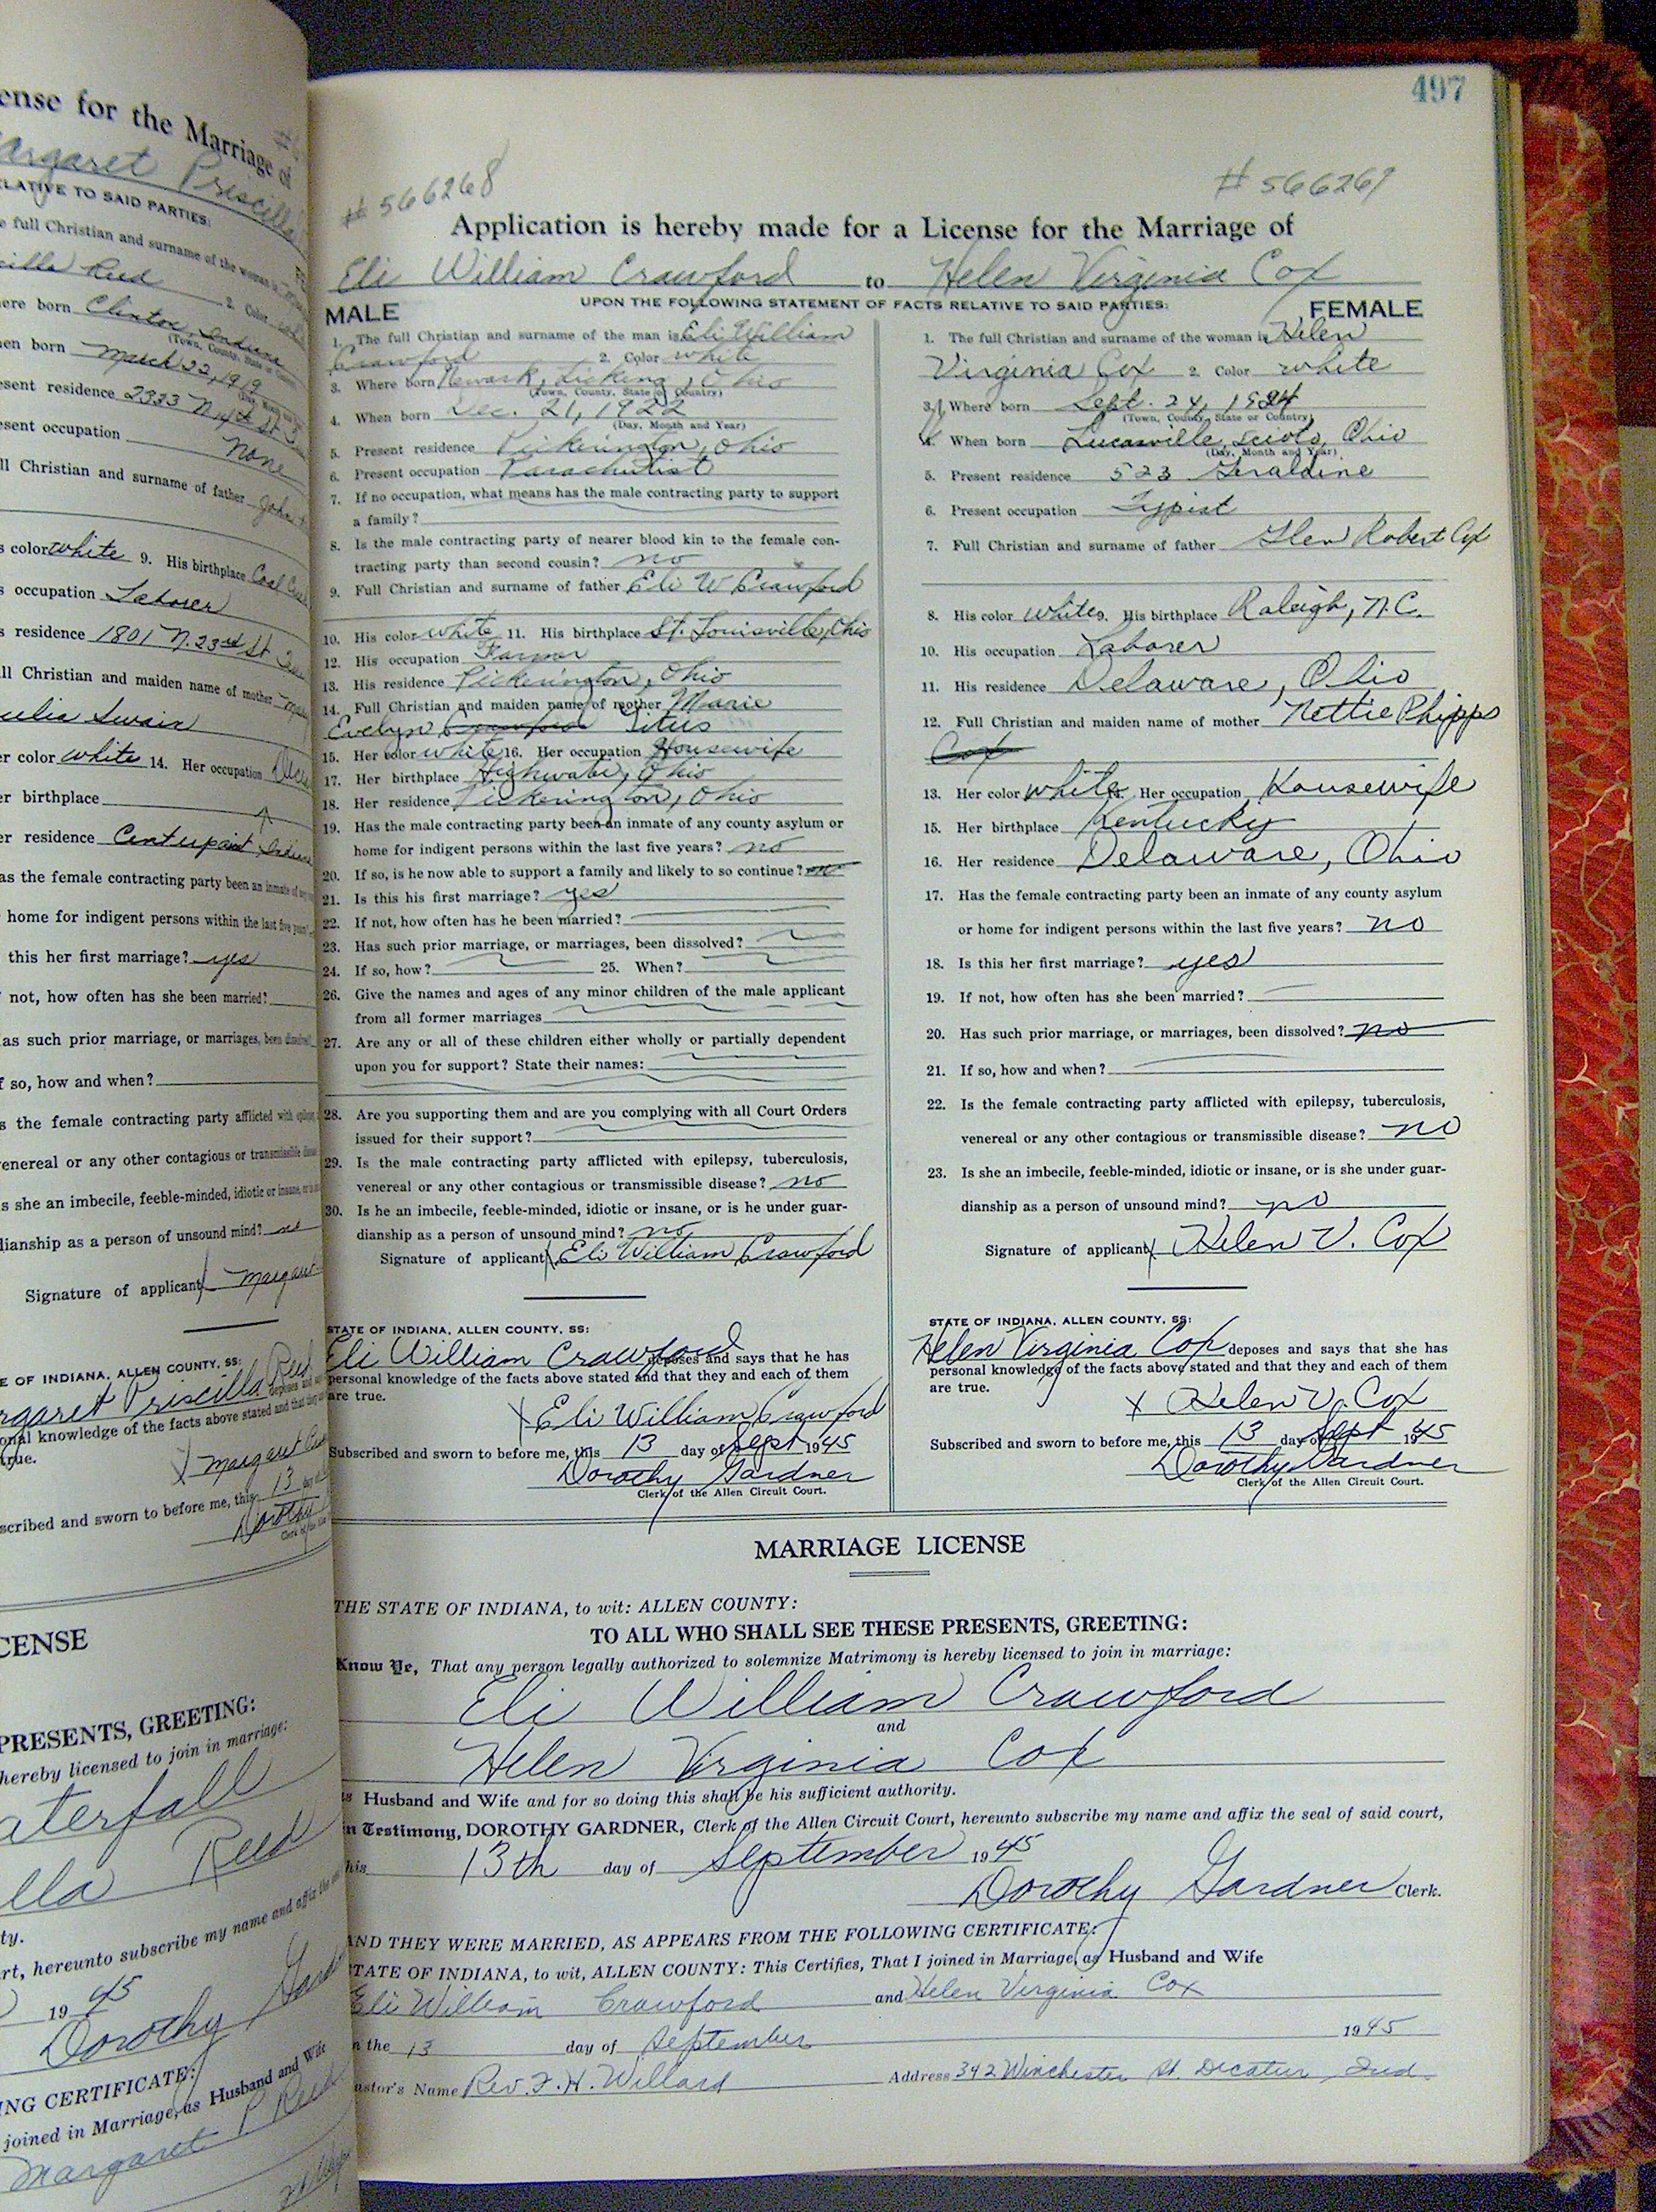 ense for the Marriage of
argaret Priscilla
ELATIVE TO SAID PARTIES:
e full Christian and surname of the woman is
cilla Reed 2. Color
ere born Clinton, Indiana
(Town, County, State or Country)
en born March 22, 1919
esent residence 2333 N.
esent occupation None
ll Christian and surname of father John
s color white 9. His birthplace Coal
s occupation Laborer
s residence 1801 N. 23rd St
ll Christian and maiden name of mother
Swain
er color white 14. Her occupation
er birthplace
er residence Centerpoint, Indiana
as the female contracting party been an inmate of any
home for indigent persons within the last five years?
this her first marriage? yes
not, how often has she been married?
as such prior marriage, or marriages, been dissolved?
f so, how and when?
s the female contracting party afflicted with epilepsy,
enereal or any other contagious or transmissible disease
s she an imbecile, feeble-minded, idiotic or insane, or is
dianship as a person of unsound mind? no
Signature of applicant Margaret
E OF INDIANA, ALLEN COUNTY, SS:
rgaret Priscilla Reed deposes and
onal knowledge of the facts above stated and that they
true.
Margaret
scribed and sworn to before me, this 13 day of
Dorothy
Clerk of the
CENSE
PRESENTS, GREETING:
hereby licensed to join in marriage:
aterfall
lla Reed
ty.
rt, hereunto subscribe my name and affix the
19 45
Dorothy Gard
ING CERTIFICATE:
joined in Marriage, as Husband and Wife
Margaret P Reed
497
# 566268 # 566269
Application is hereby made for a License for the Marriage of
Eli William Crawford to Helen Virginia Cox
UPON THE FOLLOWING STATEMENT OF FACTS RELATIVE TO SAID PARTIES:
MALE
1. The full Christian and surname of the man is Eli William
Crawford 2. Color white
3. Where born Newark, Licking, Ohio
(Town, County, State or Country)
4. When born Dec. 21, 1922
(Day, Month and Year)
5. Present residence Pickerington, Ohio
6. Present occupation Parachutist
7. If no occupation, what means has the male contracting party to support
a family?
8. Is the male contracting party of nearer blood kin to the female con-
tracting party than second cousin? no
9. Full Christian and surname of father Eli W Crawford
10. His color white 11. His birthplace St. Louisville, Ohio
12. His occupation Farmer
13. His residence Pickerington, Ohio
14. Full Christian and maiden name of mother Marie
Evelyn Crawford Titus
15. Her color white 16. Her occupation Housewife
17. Her birthplace Highwater, Ohio
18. Her residence Pickerington, Ohio
19. Has the male contracting party been an inmate of any county asylum or
home for indigent persons within the last five years? no
20. If so, is he now able to support a family and likely to so continue? no
21. Is this his first marriage? yes
22. If not, how often has he been married?
23. Has such prior marriage, or marriages, been dissolved?
24. If so, how? 25. When?
26. Give the names and ages of any minor children of the male applicant
from all former marriages
27. Are any or all of these children either wholly or partially dependent
upon you for support? State their names:
28. Are you supporting them and are you complying with all Court Orders
issued for their support?
29. Is the male contracting party afflicted with epilepsy, tuberculosis,
venereal or any other contagious or transmissible disease? no
30. Is he an imbecile, feeble-minded, idiotic or insane, or is he under guar-
dianship as a person of unsound mind? no
Signature of applicant X Eli William Crawford
STATE OF INDIANA, ALLEN COUNTY, SS:
Eli William Crawford deposes and says that he has
personal knowledge of the facts above stated and that they and each of them
are true.
X Eli William Crawford
Subscribed and sworn to before me, this 13 day of Sept 1945
Dorothy Gardner
Clerk of the Allen Circuit Court.
FEMALE
1. The full Christian and surname of the woman is Helen
Virginia Cox 2. Color white
3. Where born Sept. 24, 1924
(Town, County, State or Country)
4. When born Lucasville, Scioto, Ohio
(Day, Month and Year)
5. Present residence 523 Geraldine
6. Present occupation Typist
7. Full Christian and surname of father Glen Robert Cox
8. His color white 9. His birthplace Raleigh, N.C.
10. His occupation Laborer
11. His residence Delaware, Ohio
12. Full Christian and maiden name of mother Nettie Phipps
Cox
13. Her color white 14. Her occupation Housewife
15. Her birthplace Kentucky
16. Her residence Delaware, Ohio
17. Has the female contracting party been an inmate of any county asylum
or home for indigent persons within the last five years? no
18. Is this her first marriage? yes
19. If not, how often has she been married?
20. Has such prior marriage, or marriages, been dissolved? no
21. If so, how and when?
22. Is the female contracting party afflicted with epilepsy, tuberculosis,
venereal or any other contagious or transmissible disease? no
23. Is she an imbecile, feeble-minded, idiotic or insane, or is she under guar-
dianship as a person of unsound mind? no
Signature of applicant X Helen V. Cox
STATE OF INDIANA, ALLEN COUNTY, SS:
Helen Virginia Cox deposes and says that she has
personal knowledge of the facts above stated and that they and each of them
are true.
X Helen V. Cox
Subscribed and sworn to before me, this 13 day of Sept 1945
Dorothy Gardner
Clerk of the Allen Circuit Court.
MARRIAGE LICENSE
THE STATE OF INDIANA, to wit: ALLEN COUNTY:
TO ALL WHO SHALL SEE THESE PRESENTS, GREETING:
Know Ye, That any person legally authorized to solemnize Matrimony is hereby licensed to join in marriage:
Eli William Crawford
and
Helen Virginia Cox
s Husband and Wife and for so doing this shall be his sufficient authority.
n Testimony, DOROTHY GARDNER, Clerk of the Allen Circuit Court, hereunto subscribe my name and affix the seal of said court,
his 13th day of September 1945
Dorothy Gardner Clerk.
AND THEY WERE MARRIED, AS APPEARS FROM THE FOLLOWING CERTIFICATE:
STATE OF INDIANA, to wit, ALLEN COUNTY: This Certifies, That I joined in Marriage, as Husband and Wife
Eli William Crawford and Helen Virginia Cox
n the 13 day of September 1945
astor's Name Rev. F. H. Willard Address 342 Winchester St. Decatur, Ind.